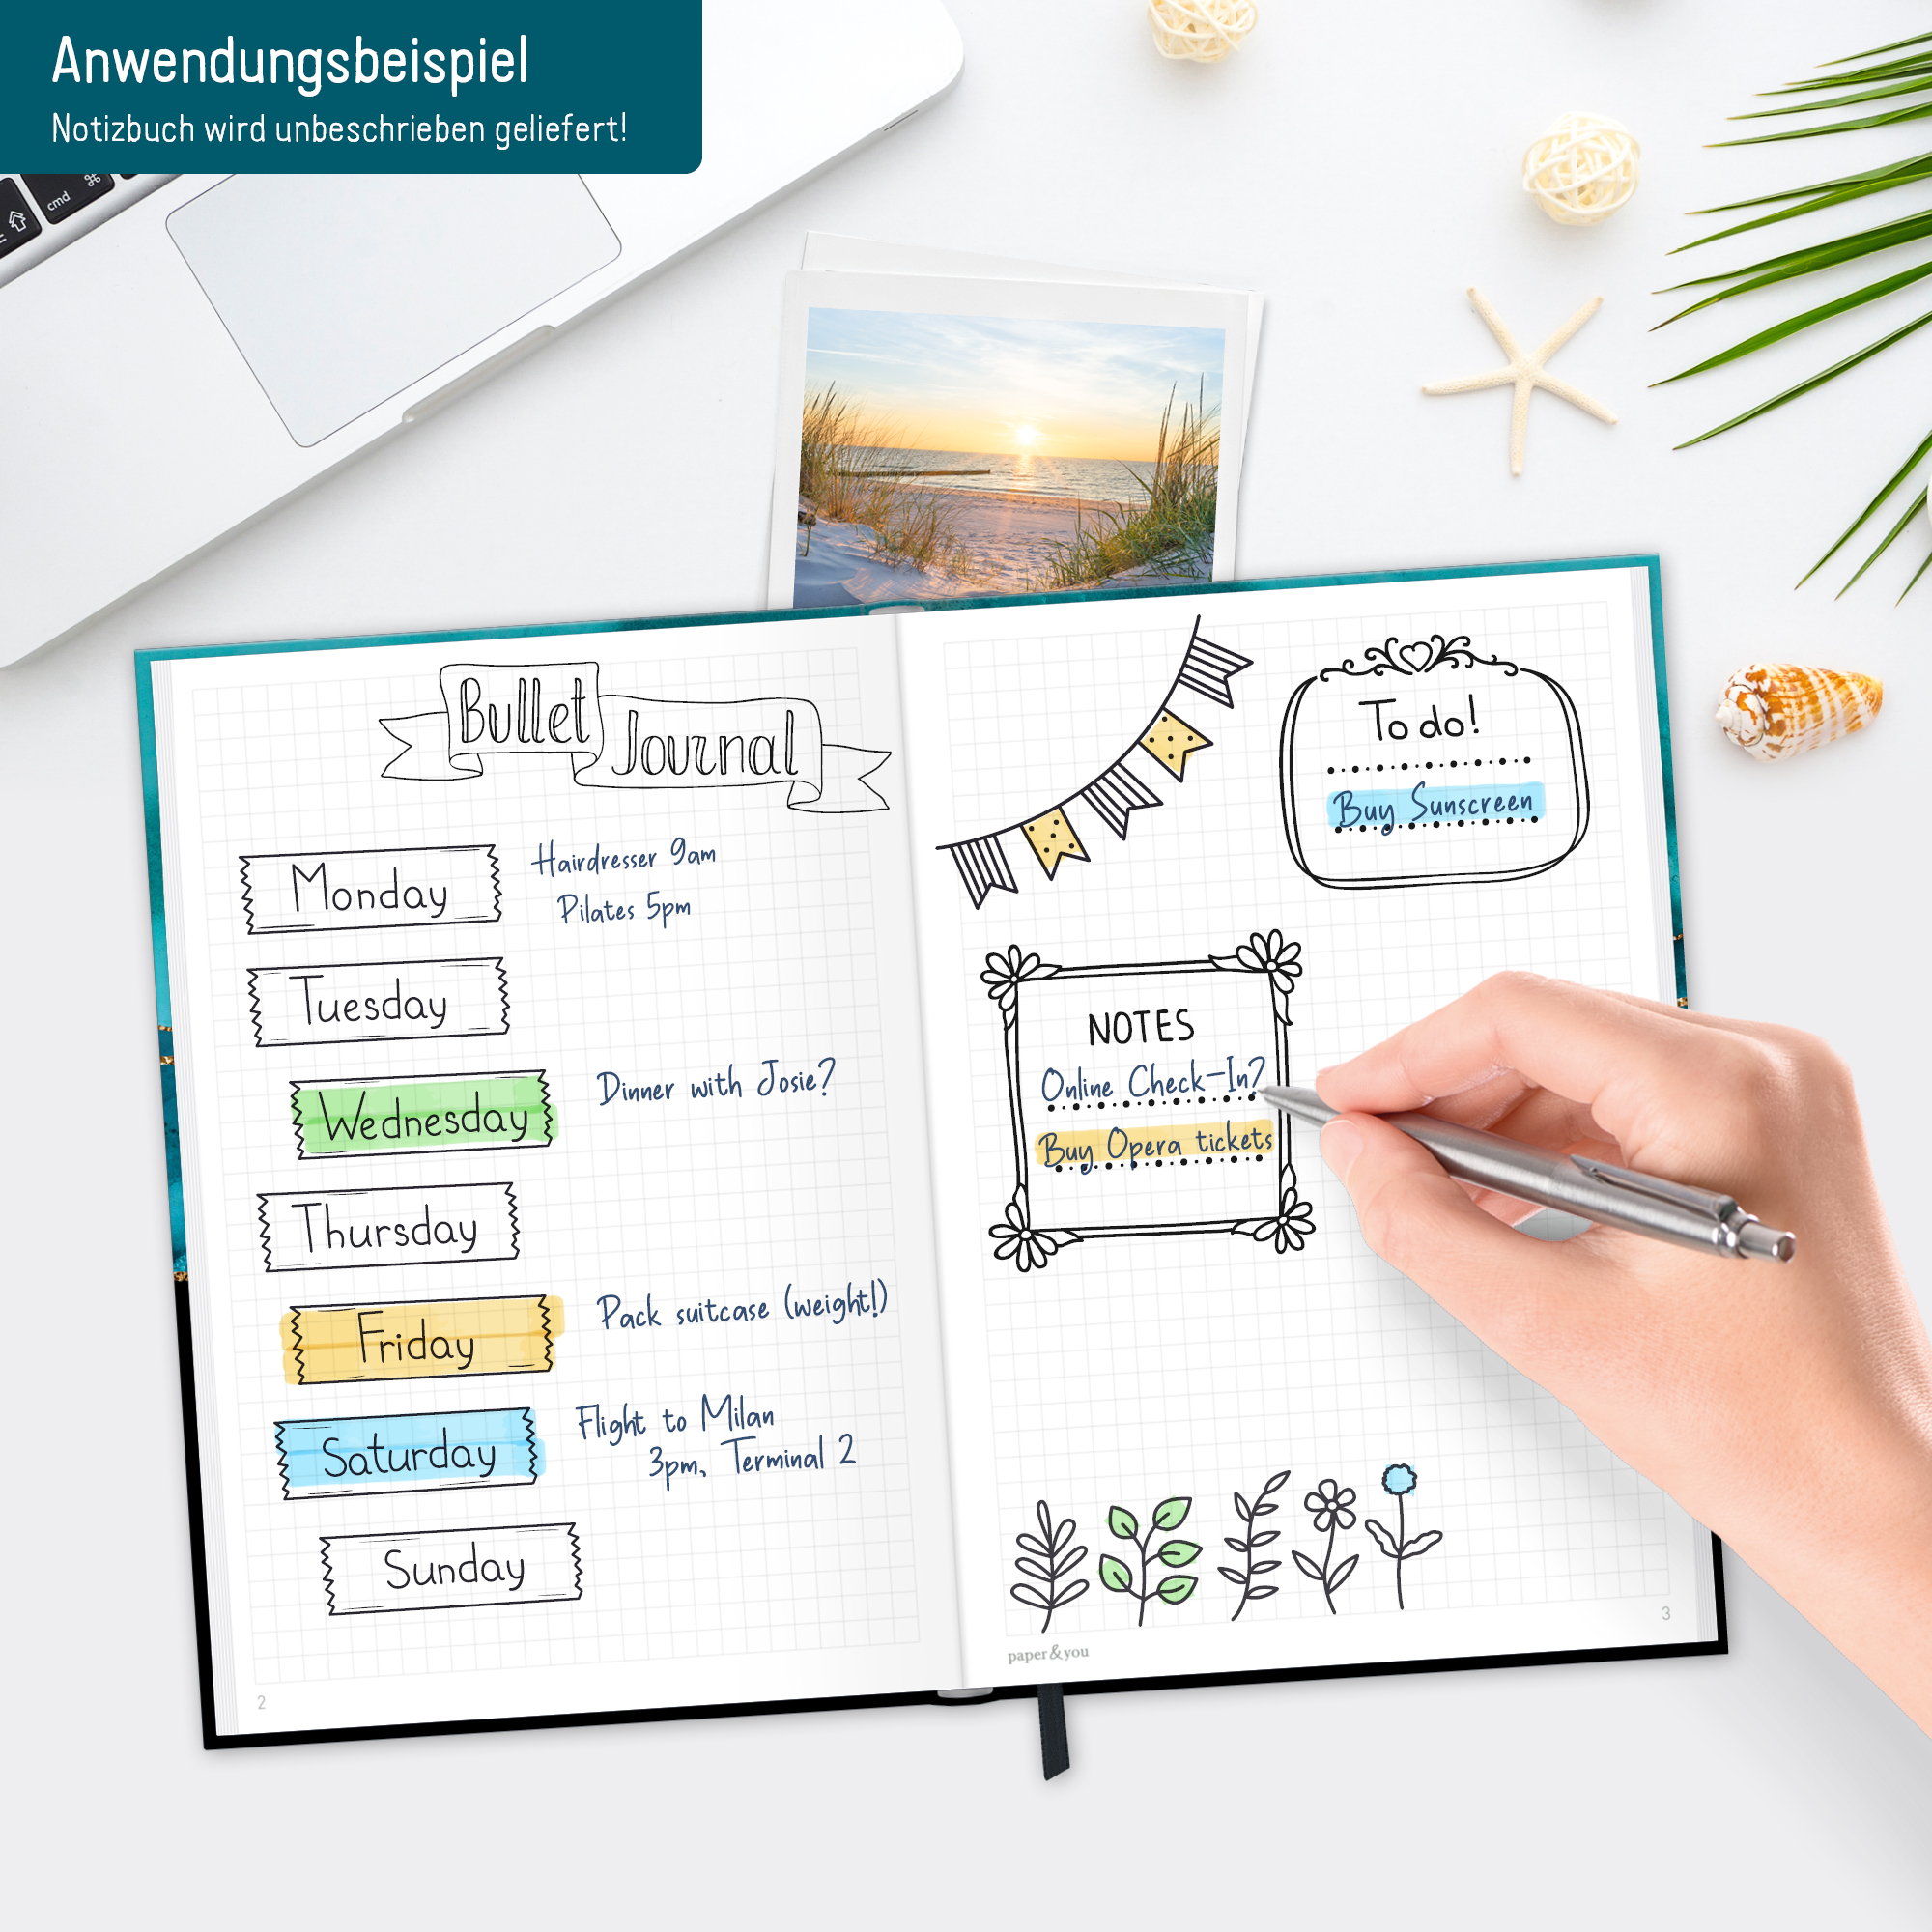 Anwendungsbeispiel
Notizbuch wird unbeschrieben geliefert!
cmd ⌘
Bullet
Journal
Monday
Hairdresser 9am
Pilates 5pm
Tuesday
Wednesday
Dinner with Josie?
Thursday
Friday
Pack suitcase (weight!)
Saturday
Flight to Milan
3pm, Terminal 2
Sunday
2
To do!
Buy Sunscreen
NOTES
Online Check-In?
Buy Opera tickets
paper&you
3